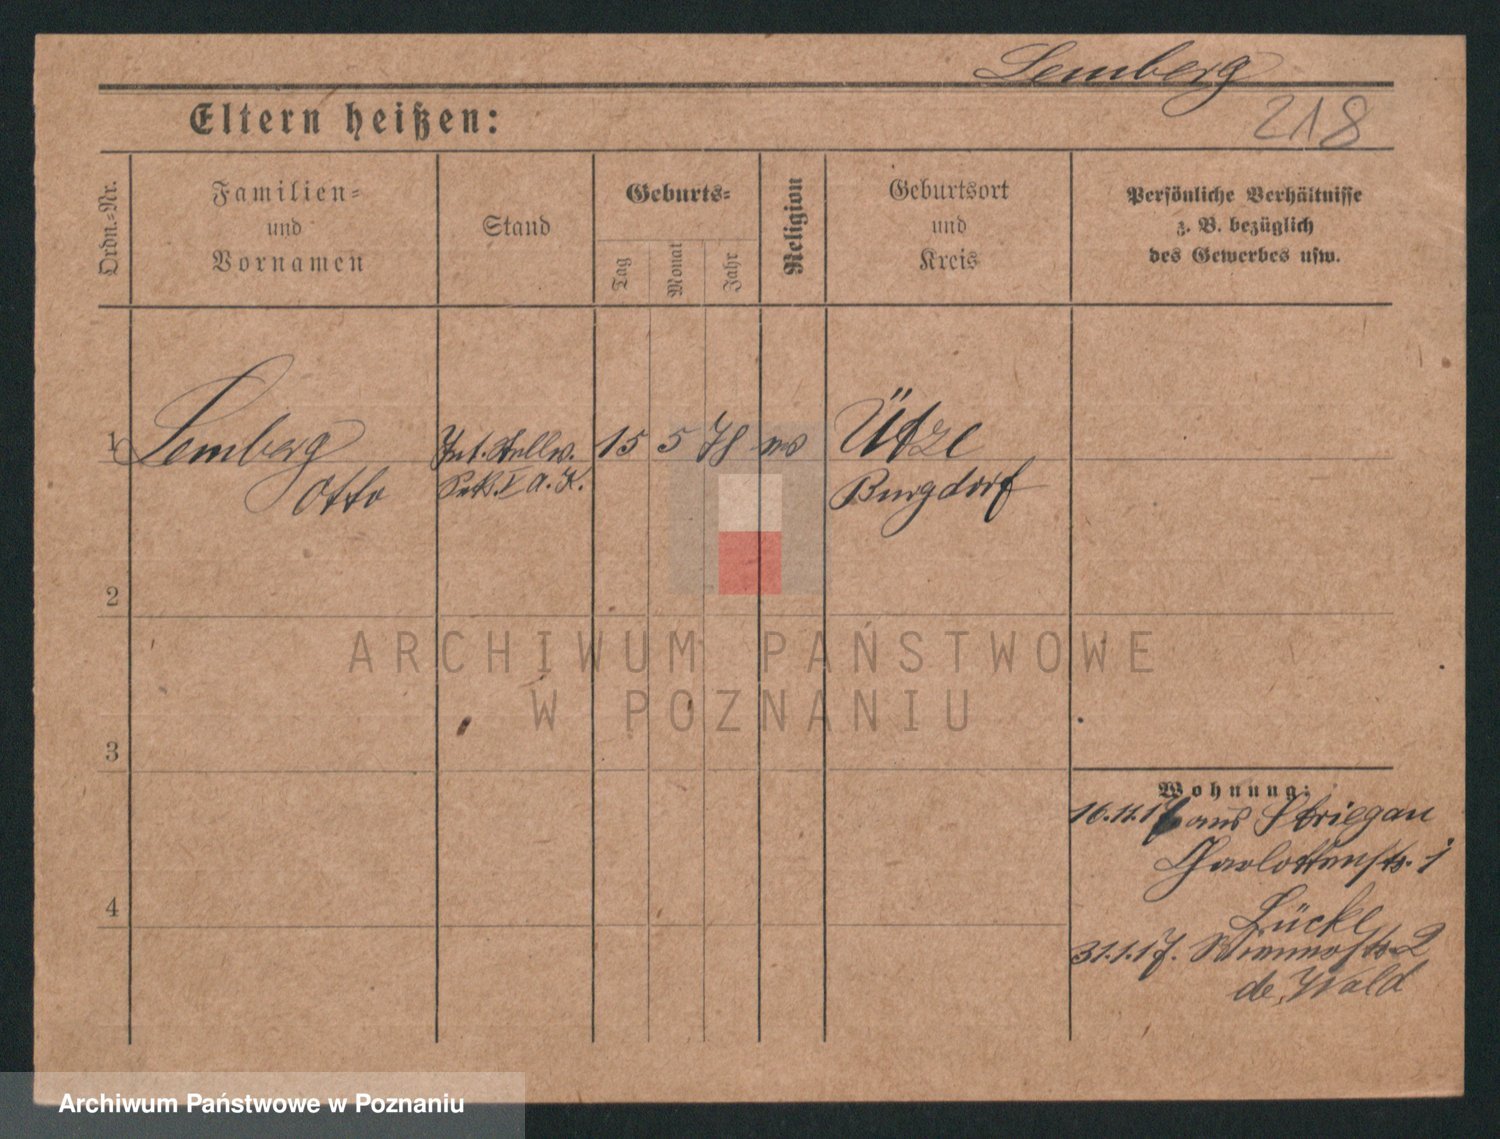 Lemberg
218
Eltern heißen:
Ordn.-Nr.
Familien-
und
Vornamen
Stand
Geburts-
Tag
Monat
Jahr
Religion
Geburtsort
und
Kreis
Persönliche Verhältnisse
z. B. bezüglich
des Gewerbes usw.
1
Lemberg
Otto
Int. Stellv.
Sekr. I A. K.
15 5 78
Ütze
Burgdorf
2
3
4
Wohnung:
16.11.17 aus Striegau
Charlottenstr. 1
Lücke
31.1.17. 2
de Wald
ARCHIWUM PAŃSTWOWE
W POZNANIU
Archiwum Państwowe w Poznaniu